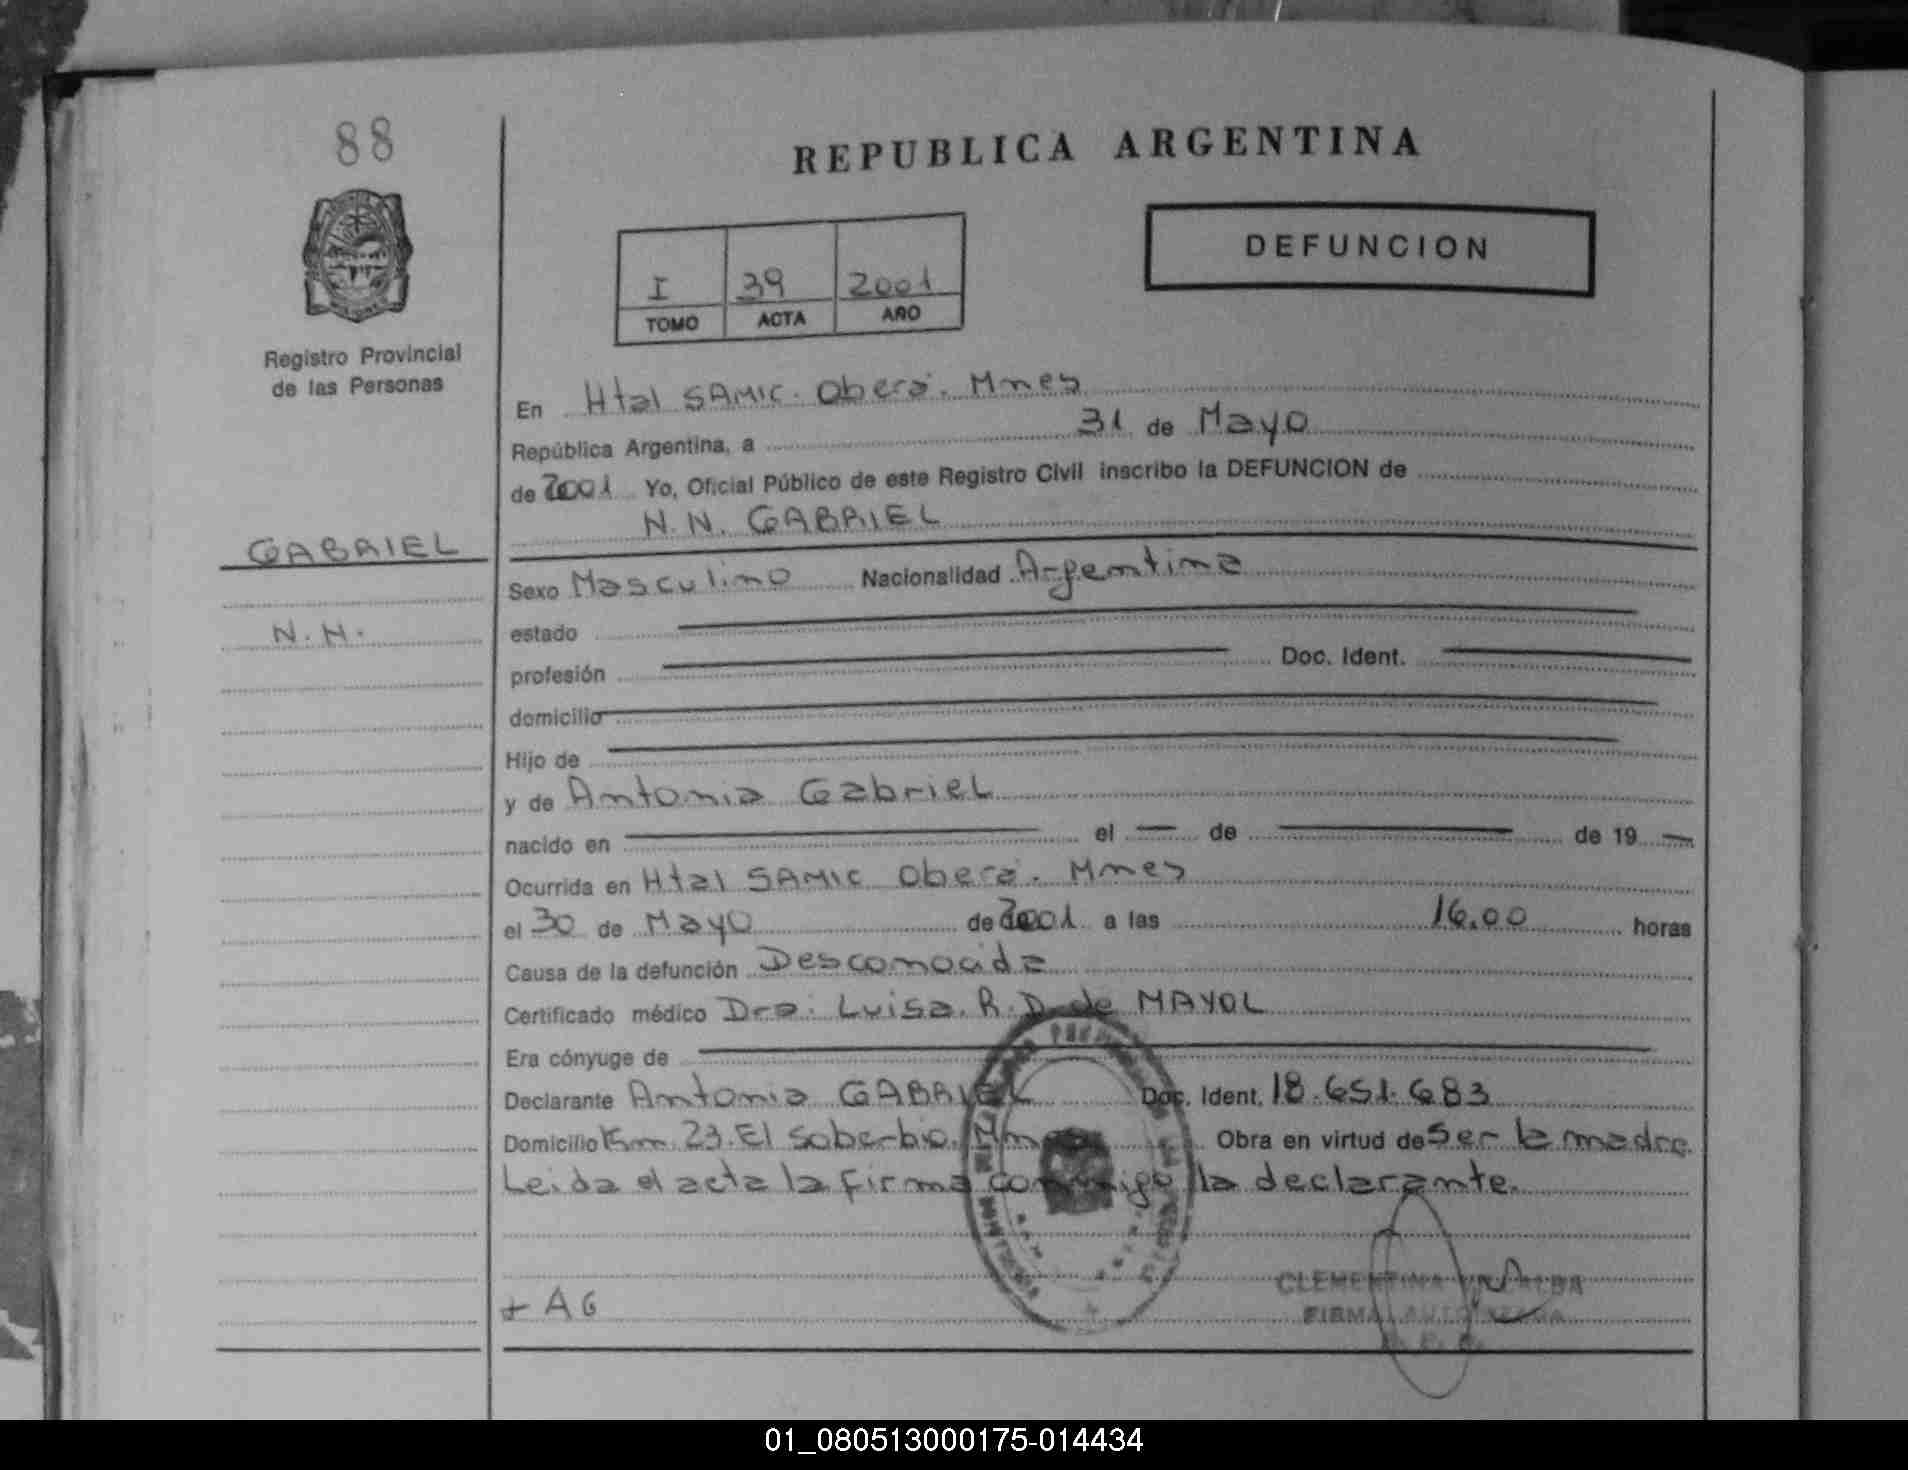 88
REPUBLICA ARGENTINA
DEFUNCION
I 39 2001
TOMO ACTA AÑO
Registro Provincial
de las Personas
GABRIEL
N.N.
En Htal SAMIC. Oberá. Mnes
República Argentina, a 31 de Mayo
de 2001 Yo, Oficial Público de este Registro Civil inscribo la DEFUNCION de
N.N. GABRIEL
Sexo Masculino Nacionalidad Argentina
estado
profesión Doc. Ident.
domicilio
Hijo de
y de Antonia GabrieL
nacido en el de de 19
Ocurrida en Htal SAMIC Oberá. Mnes
el 30 de Mayo de 2001 a las 16.00 horas
Causa de la defunción Desconocida
Certificado médico Dra: Luisa. R. D. de MAYOL
Era cónyuge de
Declarante Antonia GABRIEL Doc. Ident. 18.651.683
Domicilio Km. 23. El Soberbio. Obra en virtud de Ser la madre.
Leida el acta la firma conmigo la declarante.
+ AG
CLEMENTINA
FIRMA AUTORIZADA
01_080513000175-014434